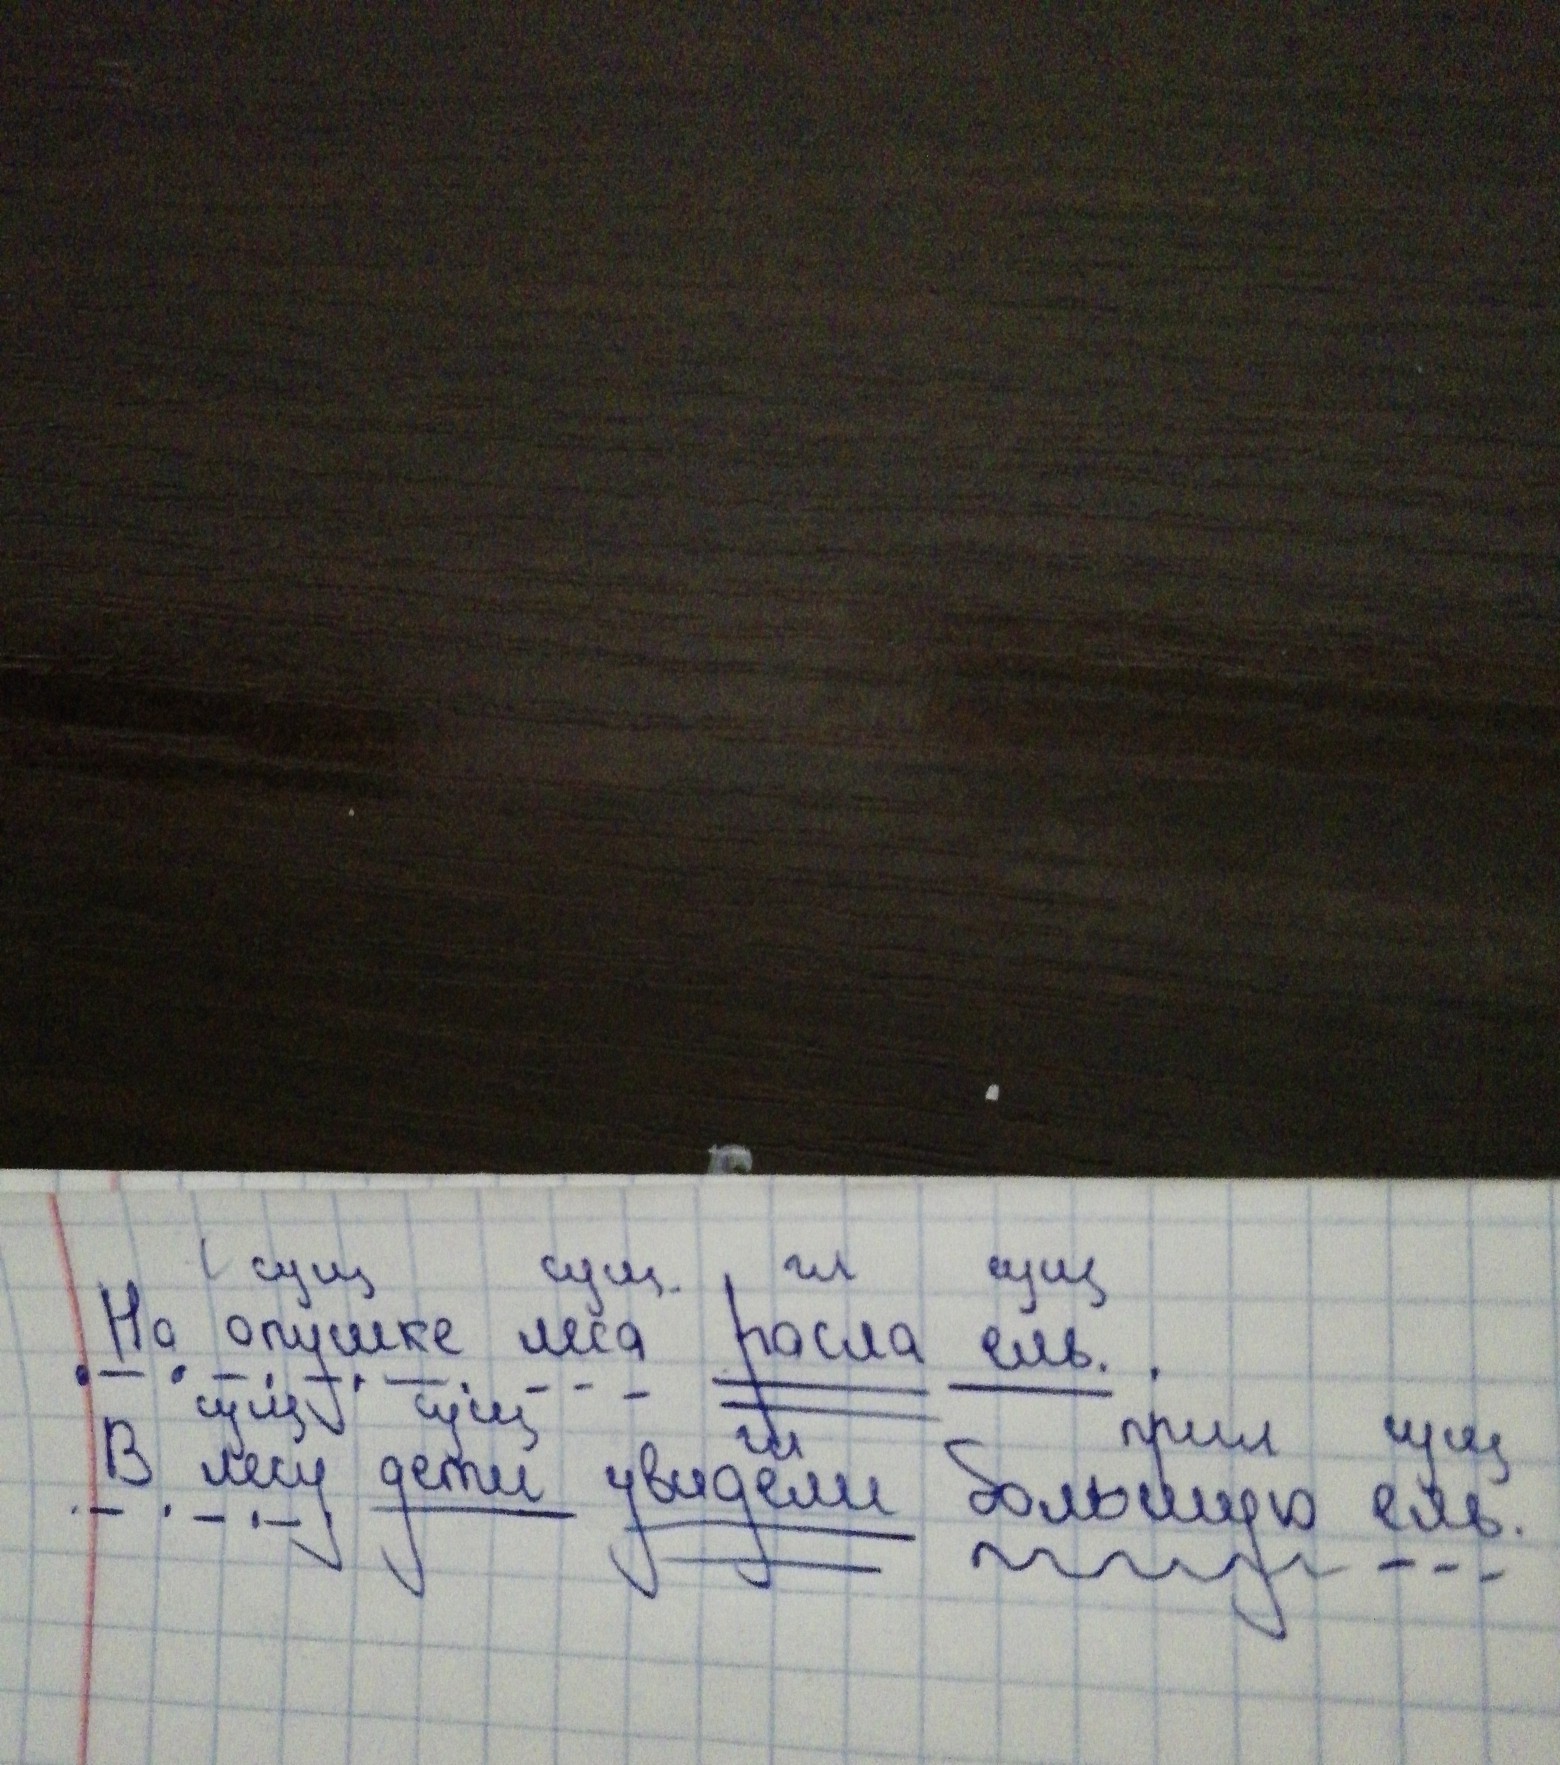 сущ сущ. гл сущ
На опушке леса росла ель.
сущ сущ гл прил сущ
В лесу дети увидели большую ель.